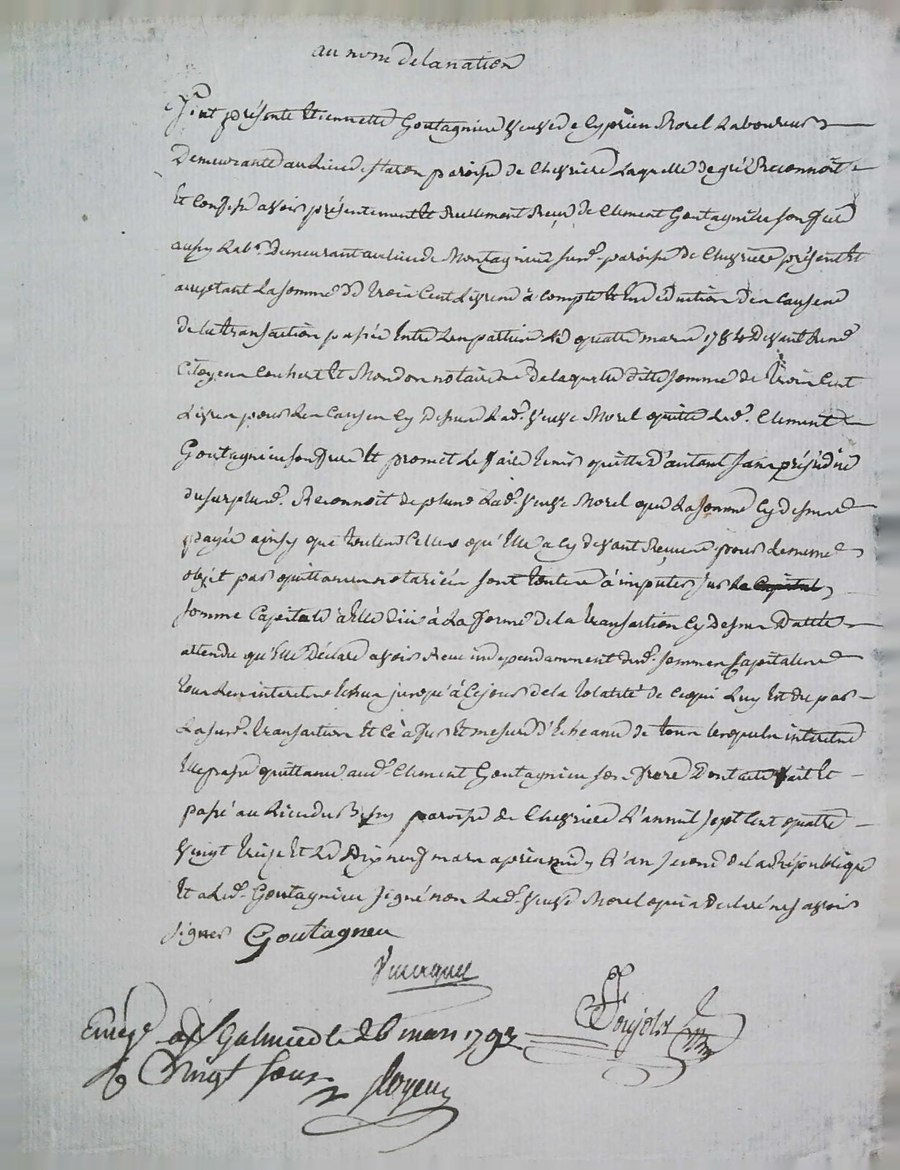 au nom de la nation
fut présente Etiennette Goutagnieu veuve de Cyprien Morel Laboureur
Demeurante au Lieu de paroisse de Chevriere Laquelle de gré Reconnoit
Et Confesse avoir présentement Et Reellement Reçu de Clement Goutagnieu son frere
aussy Lab.r Demeurant au Lieu de Montagnieu sus.e paroisse de Chevriere présent Et
acceptant La somme De trois Cent Livres à Compte Et En déduction Des Causes
de la transaction passée Entre Les parties Le quatre mars 1784 Devant
Citoyens Et Mondon notaires De laquelle ditte somme de trois Cent
Livres pour Les Causes Cy Dessus Lad.e veuve Morel quitte Led.t Clement
Goutagnieu son frere Et promet Le faire tenir quitte D'autant sans préjudice
du surplus. Reconnoit de plus Lad.e veuve Morel que La somme Cy Dessus
payée ainsy que toutes Celles qu'Elle a Cy devant Reçues pour Le même
objet par quittances notariées sont toutes à imputer sur le Capital
somme Capitale à Elle düe à La forme de la transaction Cy Dessus Dattée
attendu qu'Elle Déclare avoir Reçu independamment desd. sommes Capitales
tous Les interets Echus jusqu'à Ce jour de la totalité de Ce qui Luy Est dû par
La sus.e transaction Et Ce à fur Et mesure d'Echeance de tous lesquels interets
Elle passe quittance aud.t Clement Goutagnieu son frere Dont acte fait Et
passé au Lieu du paroisse de Chevriere L'an mil sept Cent quatre
vingt treize Et Le Dix neuf mars après midy L'an second de la République
Et a Led.t Goutagnieu signé non Lad.e veuve Morel qui a Declaré ne savoir
signer Goutagneu
Enregé a St Galmier le 26 mars 1793
R Vingt sous